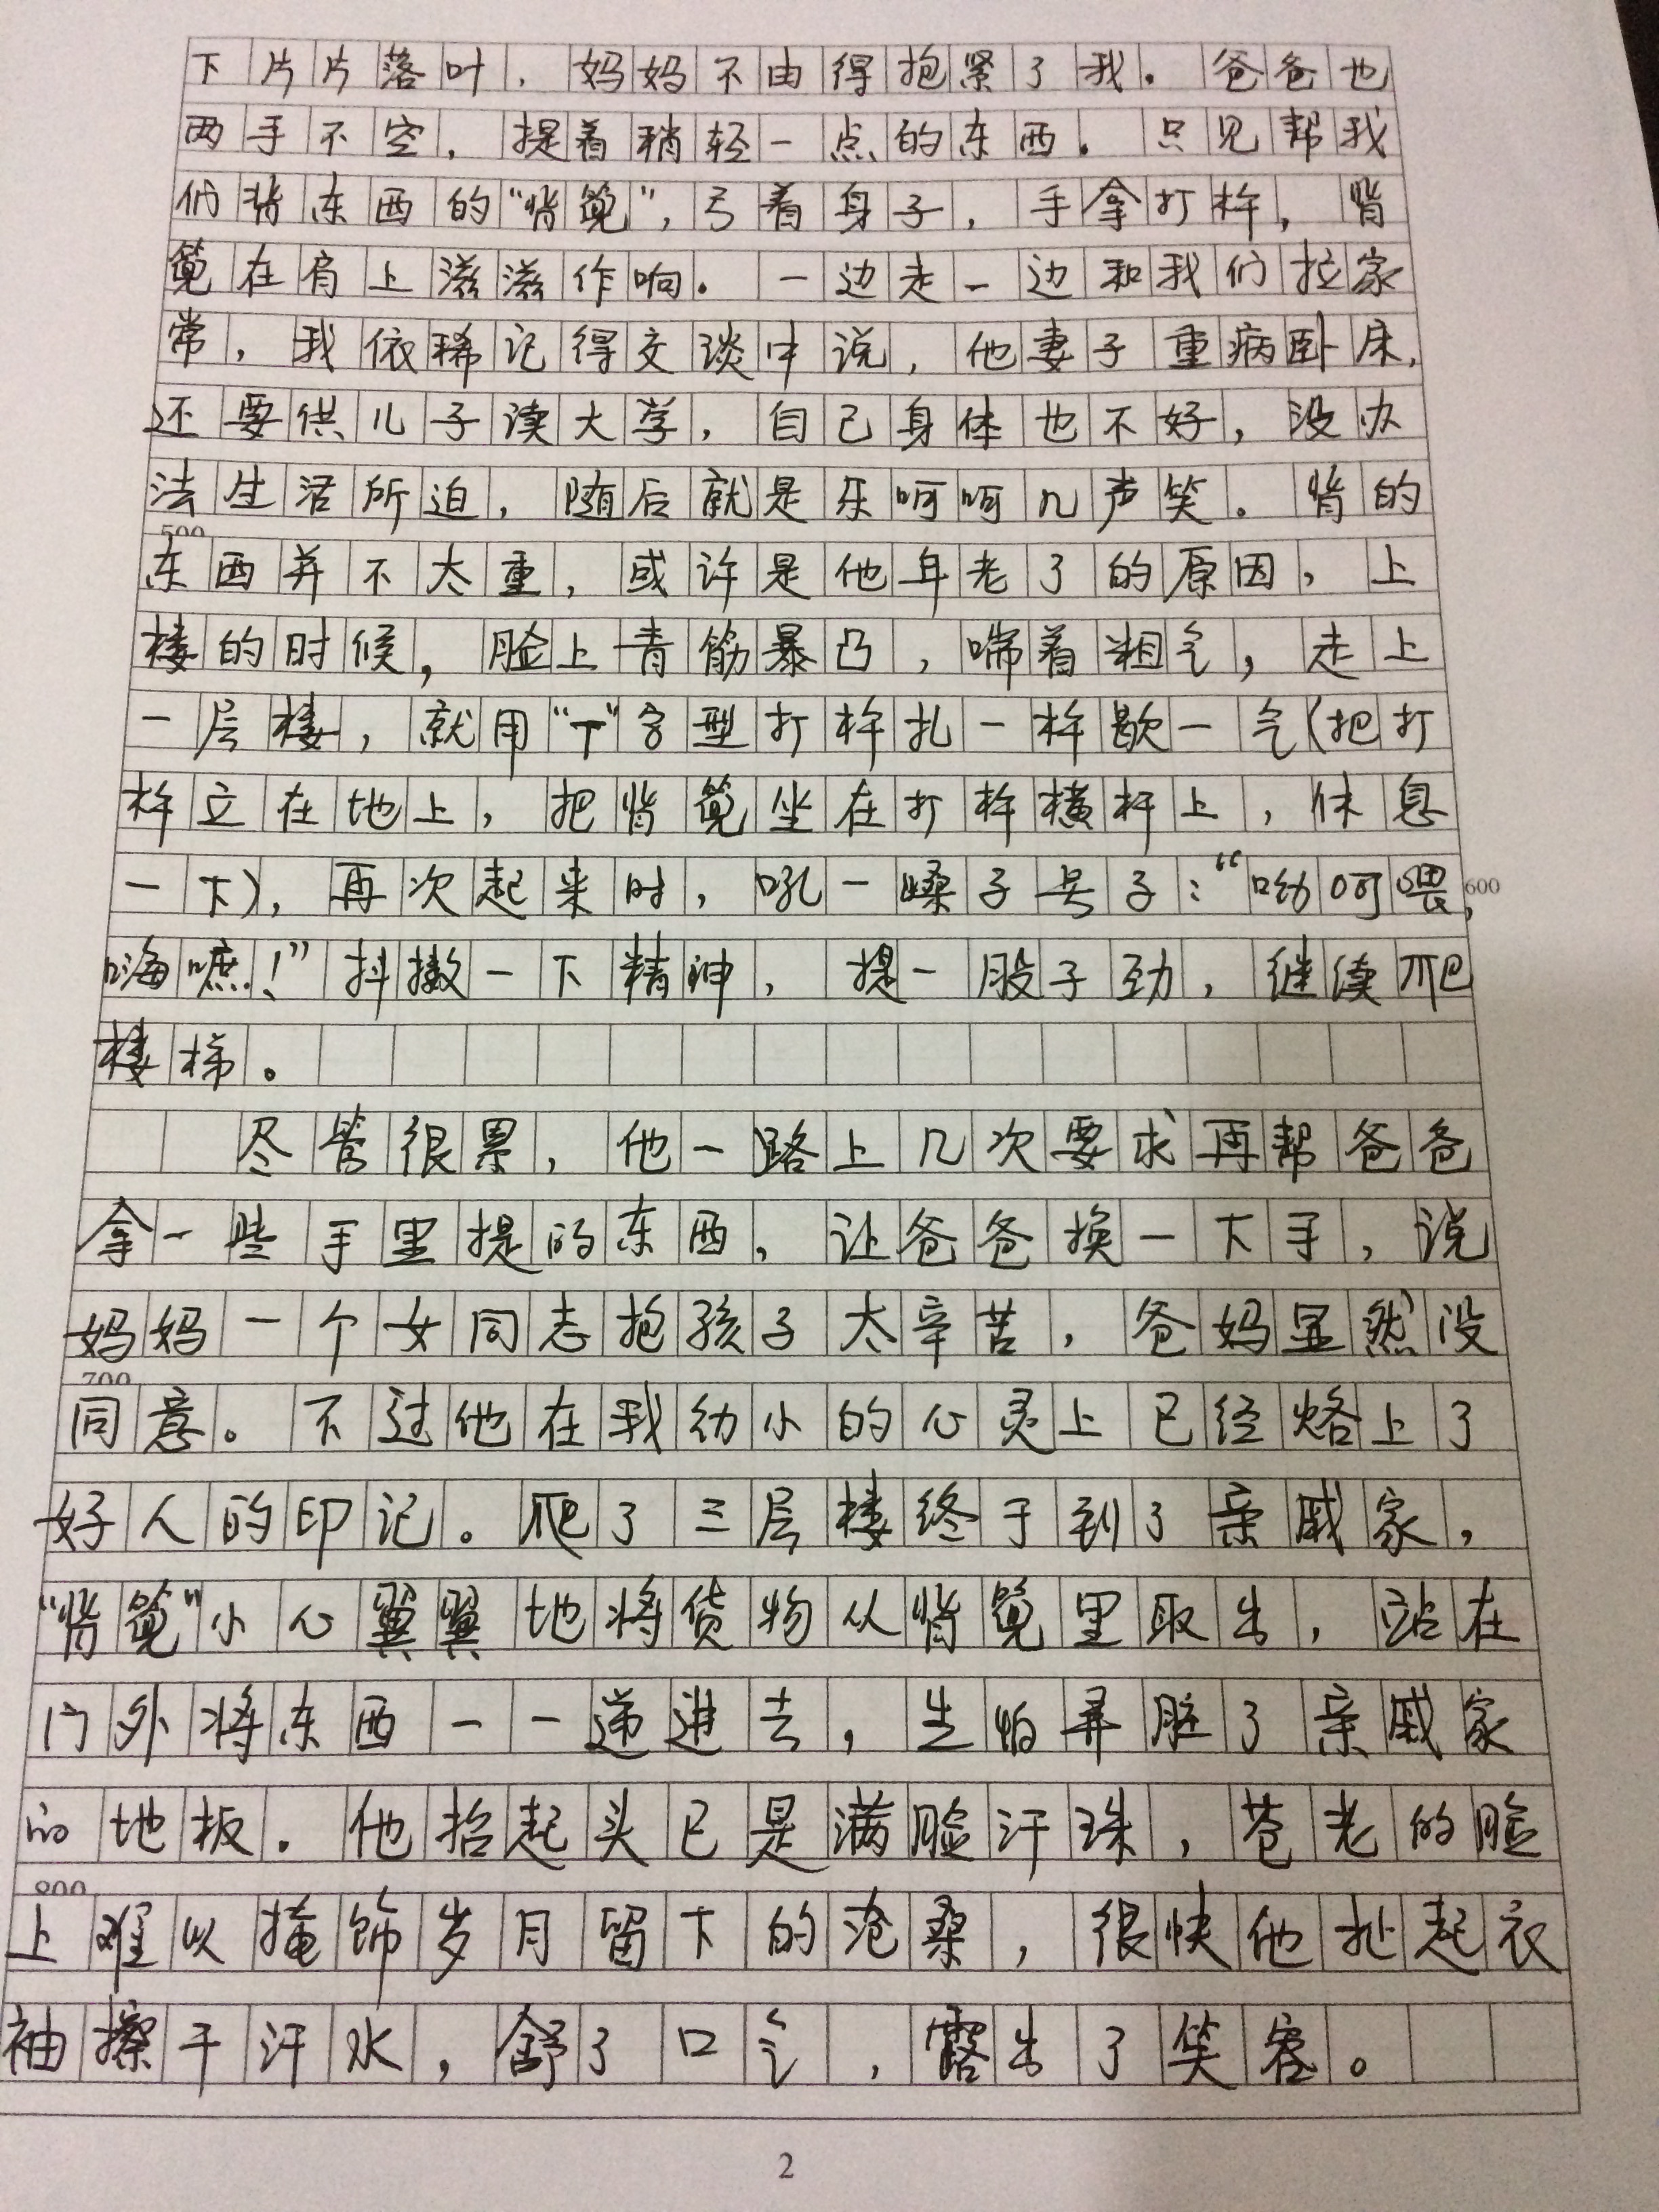 下片片落叶，妈妈不由得抱紧了我。爸爸也
两手不空，提着稍轻一点的东西。只见帮我
们背东西的“背篼”，弓着身子，手拿打杵，背
篼在肩上滋滋作响。一边走一边和我们拉家
常，我依稀记得交谈中说，他妻子重病卧床，
还要供儿子读大学，自己身体也不好，没办
法生活所迫，随后就是乐呵呵几声笑。背的
500
东西并不太重，或许是他年老了的原因，上
楼的时候，脸上青筋暴凸，喘着粗气，走上
一层楼，就用“T”字型打杵扎一杵歇一气（把打
杵立在地上，把背篼坐在打杵横杆上，休息
一下），再次起来时，吼一嗓子号子：“呦呵喂， 600
嗨嘛！”抖擞一下精神，提一股子劲，继续爬
楼梯。
尽管很累，他一路上几次要求再帮爸爸
拿一些手里提的东西，让爸爸换一下手，说
妈妈一个女同志抱孩子太辛苦，爸妈显然没
700
同意。不过他在我幼小的心灵上已经烙上了
好人的印记。爬了三层楼终于到了亲戚家，
“背篼”小心翼翼地将货物从背篼里取出，站在
门外将东西一一递进去，生怕弄脏了亲戚家
的地板。他抬起头已是满脸汗珠，苍老的脸
800
上难以掩饰岁月留下的沧桑，很快他扯起衣
袖擦干汗水，舒了口气，露出了笑容。
2